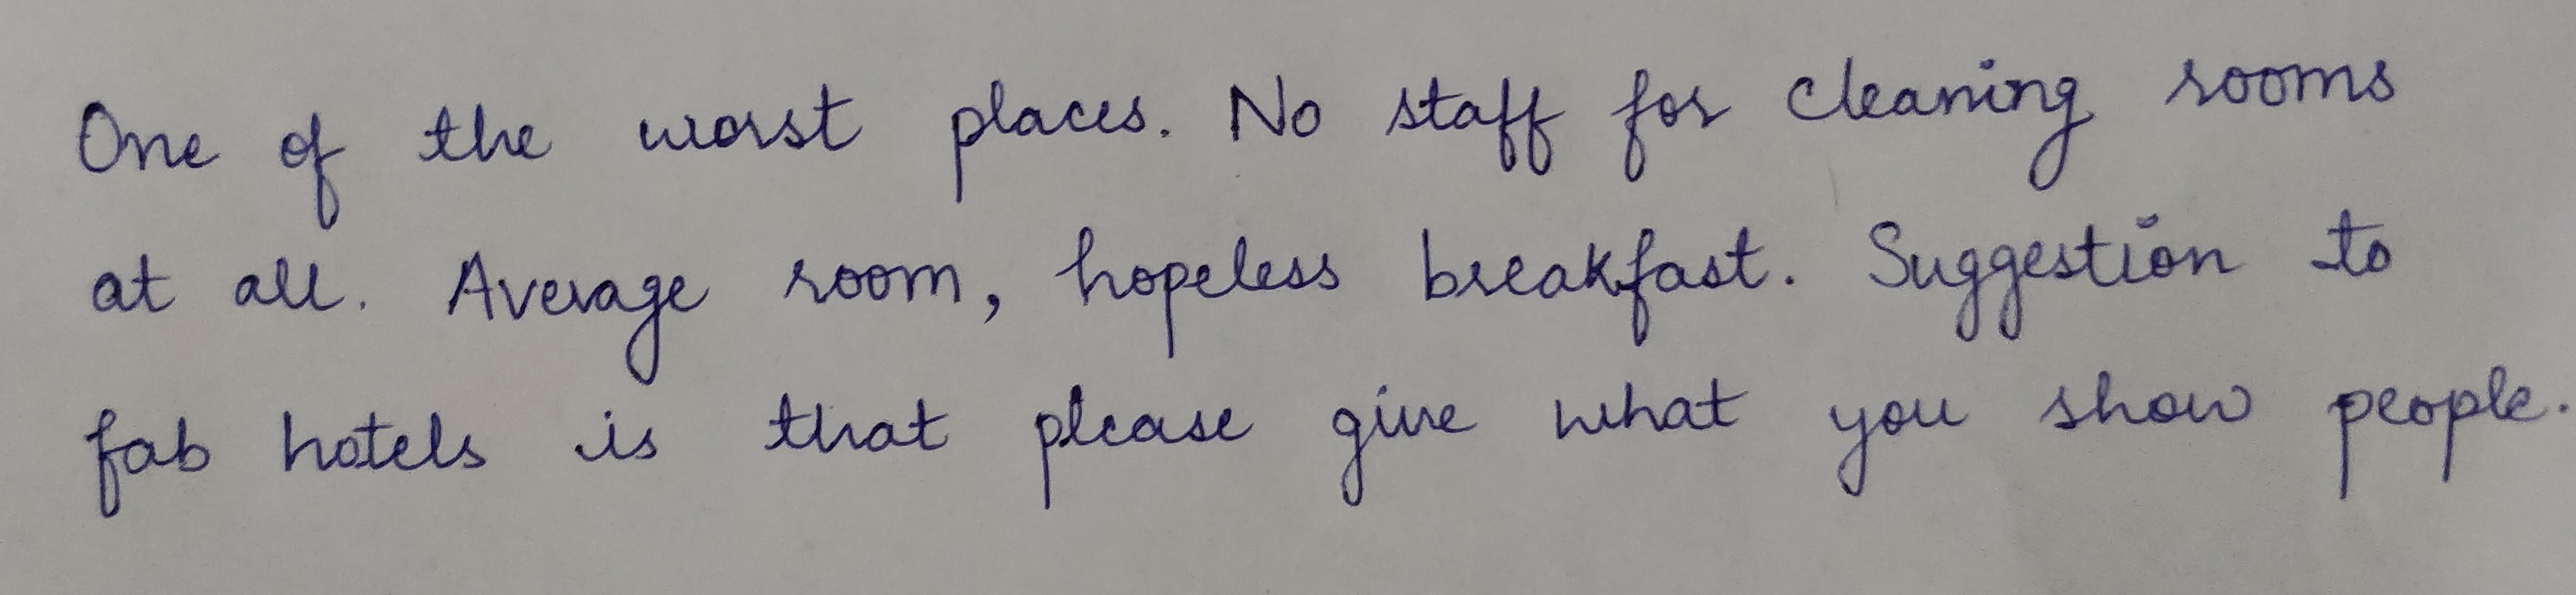 One of the worst places. No staff for cleaning rooms
at all. Average room, hopeless breakfast. Suggestion to
fab hotels is that please give what you show people.